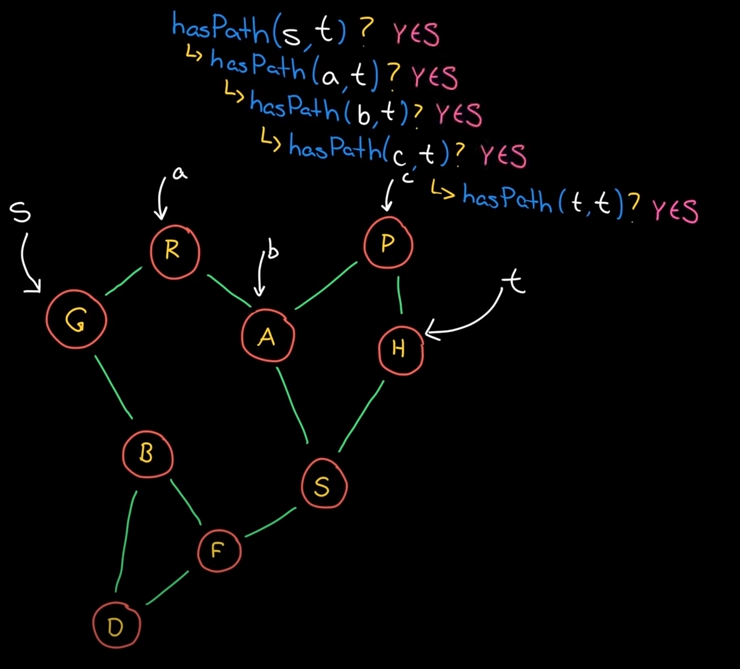 hasPath(s,t)? YES
↳hasPath(a,t)? YES
↳hasPath(b,t)? YES
↳hasPath(c,t)? YES
↳hasPath(t,t)? YES
a
c
s
R
P
b
t
G
A
H
B
S
F
D